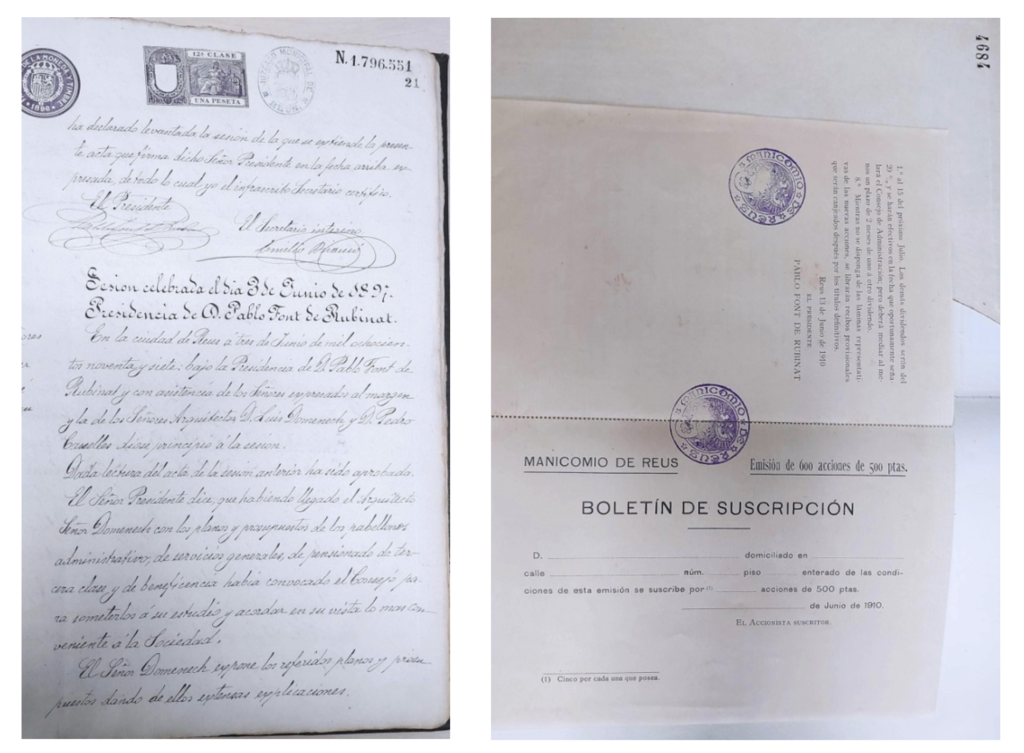 N. 1.796.551
21
12ª CLASE
UNA PESETA
ha declarado levantada la sesión de la que se extiende la presen-
te acta que firma dicho Señor Presidente en la fecha arriba ex-
presada, de todo lo cual yo el infrascrito Secretario certifico.
El Presidente
El Secretario interino
Sesion celebrada el dia 3 de Junio de 1897.
Presidencia de D. Pablo Font de Rubinat.
En la ciudad de Reus a tres de Junio de mil ochocien-
tos noventa y siete: bajo la Presidencia de D. Pablo Font de
Rubinat y con asistencia de los Señores expresados al margen
y la de los Señores Arquitectos D. Luis Domenech y D. Pedro
Caselles dióse principio á la sesión.
Dada lectura del acta de la sesión anterior ha sido aprobada.
El Señor Presidente dice, que habiendo llegado el Arquitecto
Señor Domenech con los planos y presupuestos de los pabellones
administrativo, de servicios generales, de pensionado de ter-
cera clase, y de beneficencia habia convocado el Consejo pa-
ra someterlos á su estudio y acordar en su vista lo mas con-
veniente á la Sociedad.
El Señor Domenech expone los referidos planos y presu-
puestos dando de ellos extensas explicaciones.
4897
1.º al 15 del próximo Julio. Los demás dividendos serán del
20 %, y se harán efectivos en la fecha que oportunamente seña-
lará el Consejo de Administración, pero deberá mediar al me-
nos un plazo de 2 meses de uno á otro dividendo.
8.º Mientras no se disponga de las láminas representati-
vas de las nuevas acciones, se librarán recibos provisionales
que serán canjeados después por los títulos definitivos.
Reus 11 de Junio de 1910
EL PRESIDENTE
PABLO FONT DE RUBINAT
MANICOMIO DE REUS
MANICOMIO DE REUS
MANICOMIO DE REUS
Emisión de 600 acciones de 500 ptas.
BOLETÍN DE SUSCRIPCIÓN
D. domiciliado en
calle núm. piso enterado de las condi-
ciones de esta emisión se suscribe por (1) acciones de 500 ptas.
de Junio de 1910.
EL ACCIONISTA SUSCRITOR,
(1) Cinco por cada una que posea.